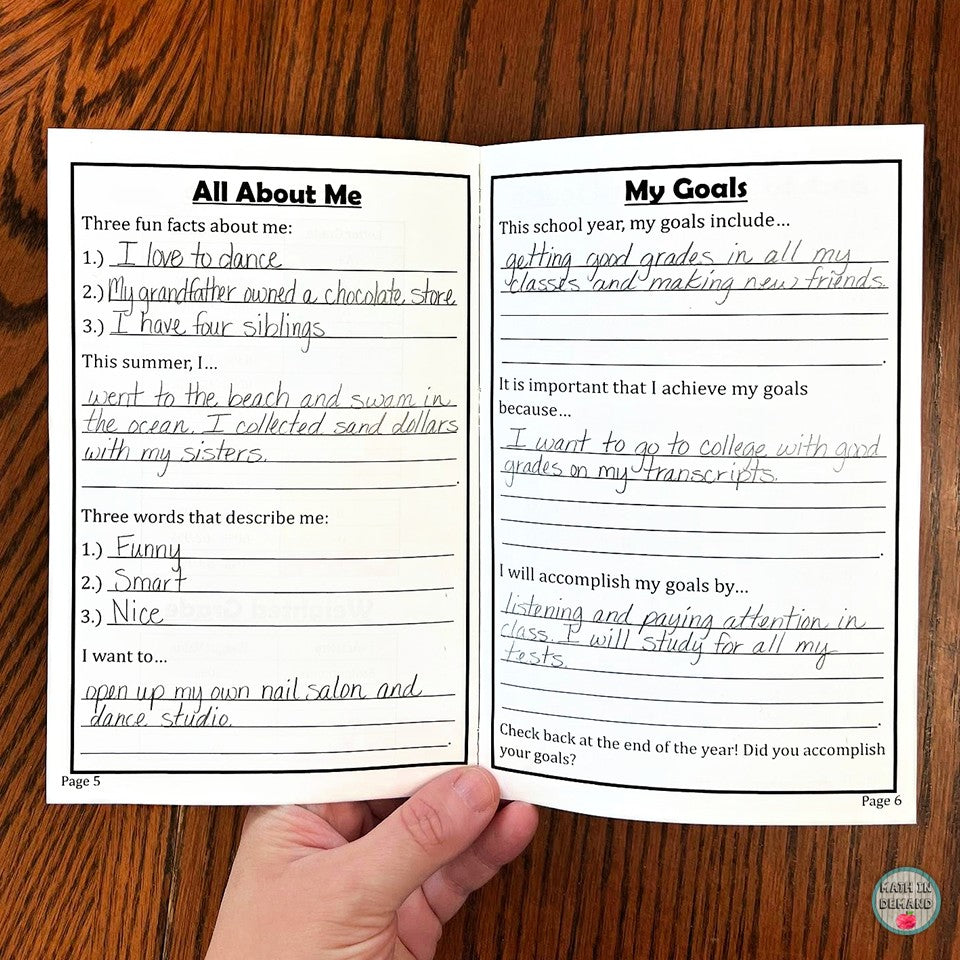 All About Me
Three fun facts about me:
1.) I love to dance
2.) My grandfather owned a chocolate store
3.) I have four siblings
This summer, I...
went to the beach and swam in
the ocean. I collected sand dollars
with my sisters.
Three words that describe me:
1.) Funny
2.) Smart
3.) Nice
I want to...
open up my own nail salon and
dance studio.
Page 5
My Goals
This school year, my goals include...
getting good grades in all my
classes and making new friends.
It is important that I achieve my goals
because...
I want to go to college with good
grades on my transcripts.
I will accomplish my goals by...
listening and paying attention in
class. I will study for all my
tests.
Check back at the end of the year! Did you accomplish
your goals?
Page 6
MATH IN
DEMAND